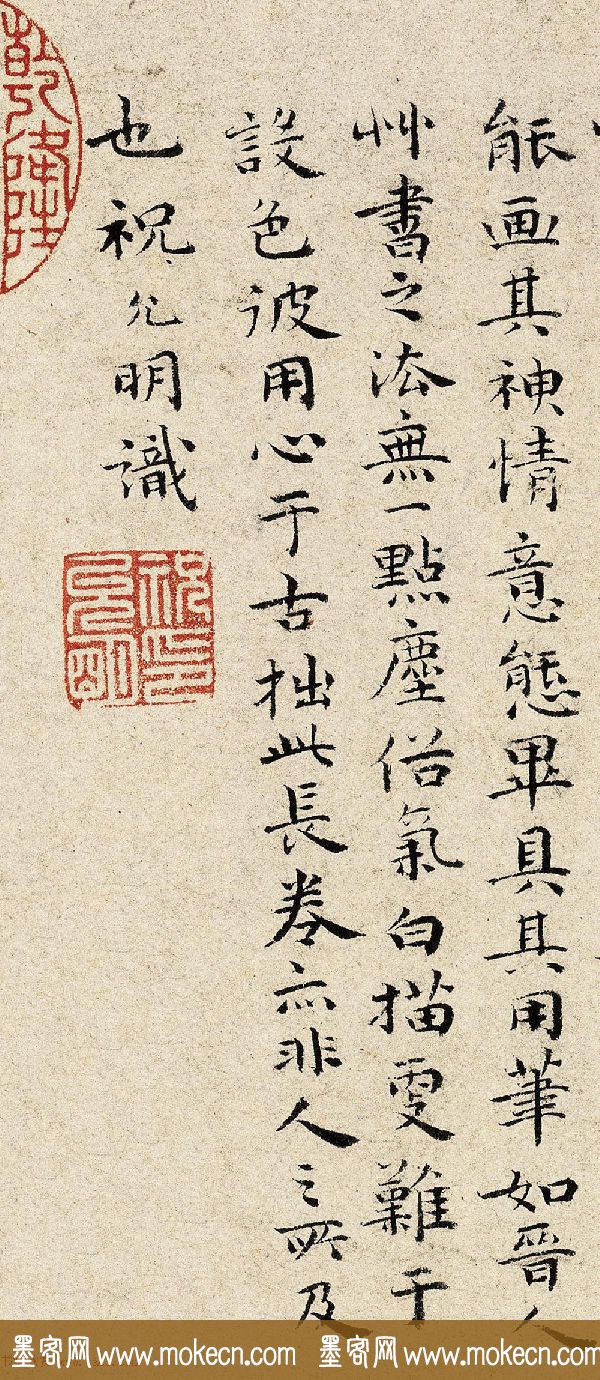 能画其神情意態畢具其用筆如晉人
艸書之法無一點塵俗氣白描更難于
設色彼用心于古拙此長卷亦非人之所及
也祝允明識
乾隆
祝允明印
墨客网 www.mokecn.com 墨客网 www.mokecn.com